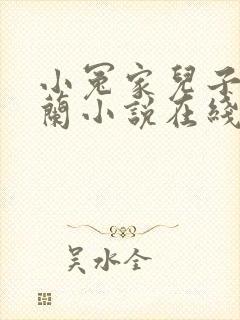 小冤家兒子
蘭小說在綫
吴水全